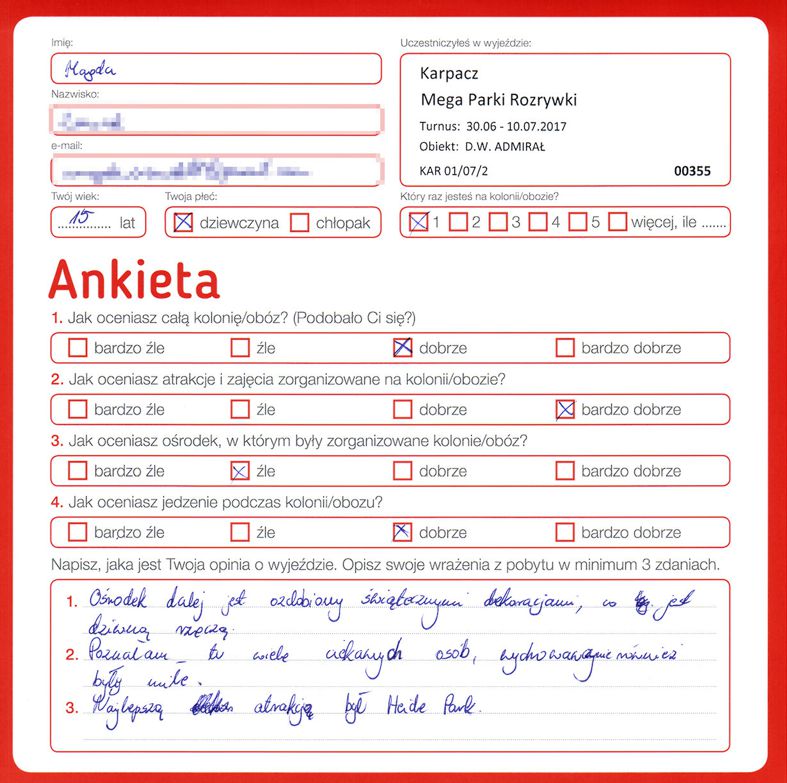 Imię:
Magda
Nazwisko:
e-mail:
Twój wiek:
15 lat
Twoja płeć:
dziewczyna chłopak
Uczestniczyłeś w wyjeździe:
Karpacz
Mega Parki Rozrywki
Turnus: 30.06 - 10.07.2017
Obiekt: D.W. ADMIRAŁ
KAR 01/07/2 00355
Który raz jesteś na kolonii/obozie?
1 2 3 4 5 więcej, ile .......
Ankieta
1. Jak oceniasz całą kolonię/obóz? (Podobało Ci się?)
bardzo źle źle dobrze bardzo dobrze
2. Jak oceniasz atrakcje i zajęcia zorganizowane na kolonii/obozie?
bardzo źle źle dobrze bardzo dobrze
3. Jak oceniasz ośrodek, w którym były zorganizowane kolonie/obóz?
bardzo źle źle dobrze bardzo dobrze
4. Jak oceniasz jedzenie podczas kolonii/obozu?
bardzo źle źle dobrze bardzo dobrze
Napisz, jaka jest Twoja opinia o wyjeździe. Opisz swoje wrażenia z pobytu w minimum 3 zdaniach.
1. Ośrodek dalej jest ozdobiony świątecznymi dekoracjami, co jest
dziwną rzeczą.
2. Poznałam tu wiele ciekawych osób, również
były miłe.
3. Najlepszą atrakcją był Heide Park.